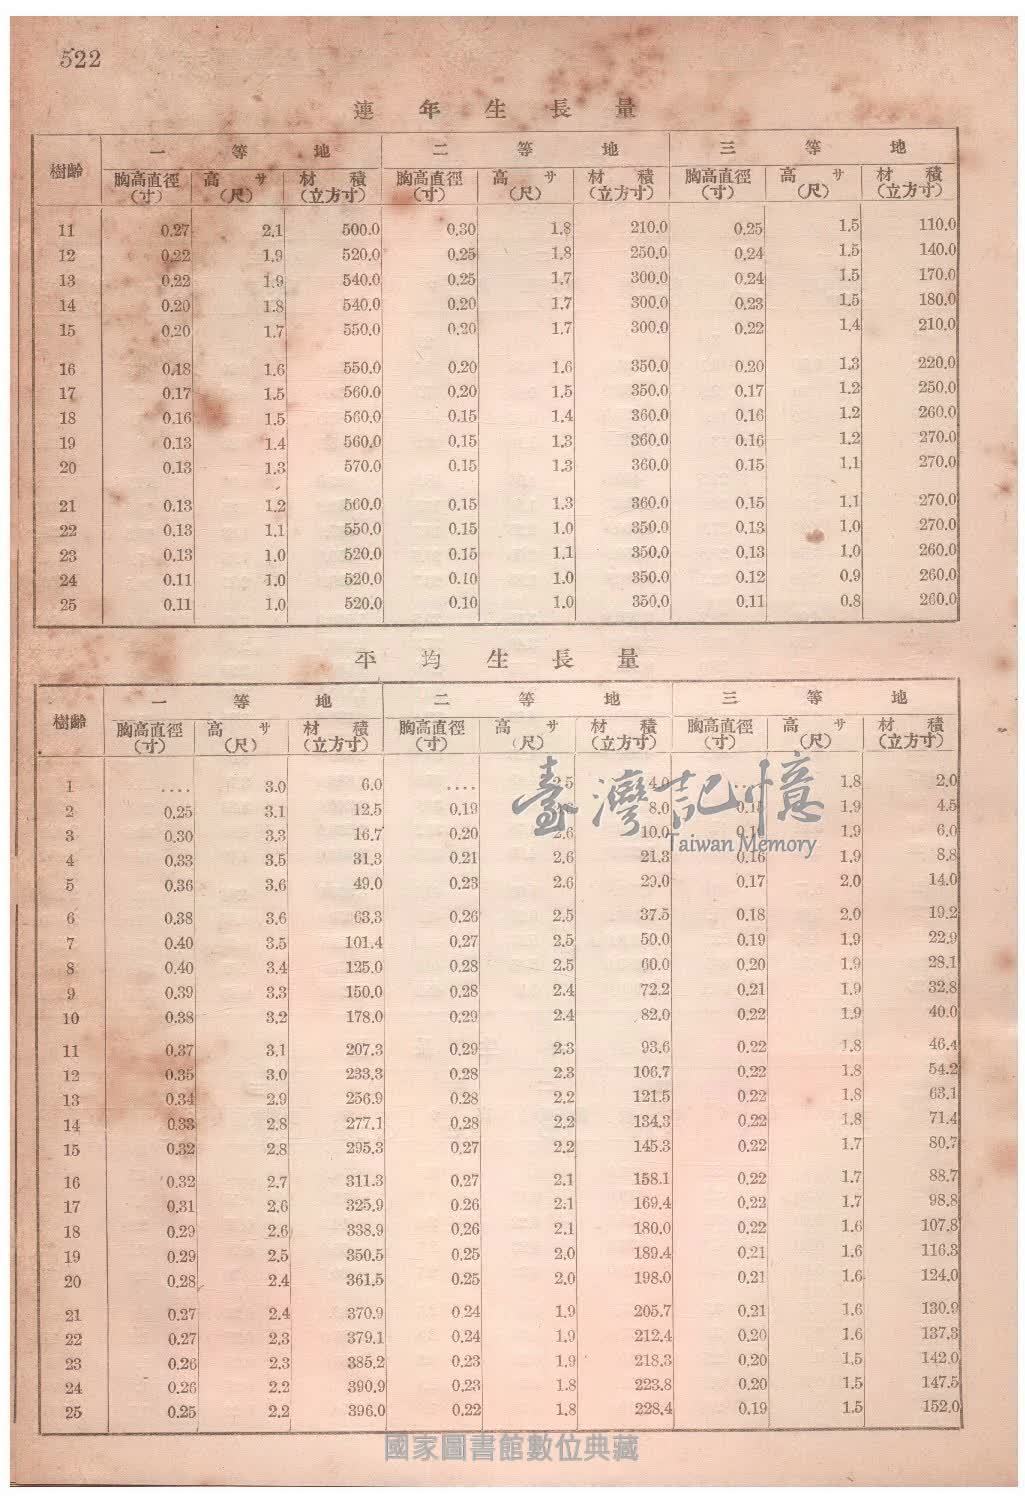 522
連年生長量
樹齡 一等地 二等地 三等地
胸高直徑(寸) 高サ(尺) 材積(立方寸) 胸高直徑(寸) 高サ(尺) 材積(立方寸) 胸高直徑(寸) 高サ(尺) 材積(立方寸)
11 0.27 2.1 500.0 0.30 1.8 210.0 0.25 1.5 110.0
12 0.22 1.9 520.0 0.25 1.8 250.0 0.24 1.5 140.0
13 0.22 1.9 540.0 0.25 1.7 300.0 0.24 1.5 170.0
14 0.20 1.8 540.0 0.20 1.7 300.0 0.23 1.5 180.0
15 0.20 1.7 550.0 0.20 1.7 300.0 0.22 1.4 210.0
16 0.18 1.6 550.0 0.20 1.6 350.0 0.20 1.3 220.0
17 0.17 1.5 560.0 0.20 1.5 350.0 0.17 1.2 250.0
18 0.16 1.5 560.0 0.15 1.4 360.0 0.16 1.2 260.0
19 0.13 1.4 560.0 0.15 1.3 360.0 0.16 1.2 270.0
20 0.13 1.3 570.0 0.15 1.3 360.0 0.15 1.1 270.0
21 0.13 1.2 560.0 0.15 1.3 360.0 0.15 1.1 270.0
22 0.13 1.1 550.0 0.15 1.0 350.0 0.13 1.0 270.0
23 0.13 1.0 520.0 0.15 1.1 350.0 0.13 1.0 260.0
24 0.11 1.0 520.0 0.10 1.0 350.0 0.12 0.9 260.0
25 0.11 1.0 520.0 0.10 1.0 350.0 0.11 0.8 260.0
平均生長量
樹齡 一等地 二等地 三等地
胸高直徑(寸) 高サ(尺) 材積(立方寸) 胸高直徑(寸) 高サ(尺) 材積(立方寸) 胸高直徑(寸) 高サ(尺) 材積(立方寸)
1 .... 3.0 6.0 .... 2.5 4.0 1.8 2.0
2 0.25 3.1 12.5 0.19 8.0 0.15 1.9 4.5
3 0.30 3.3 16.7 0.20 2.6 10.0 1.9 6.0
4 0.33 3.5 31.3 0.21 2.6 21.3 0.16 1.9 8.8
5 0.36 3.6 49.0 0.23 2.6 29.0 0.17 2.0 14.0
6 0.38 3.6 63.3 0.26 2.5 37.5 0.18 2.0 19.2
7 0.40 3.5 101.4 0.27 2.5 50.0 0.19 1.9 22.9
8 0.40 3.4 125.0 0.28 2.5 60.0 0.20 1.9 28.1
9 0.39 3.3 150.0 0.28 2.4 72.2 0.21 1.9 32.8
10 0.38 3.2 178.0 0.29 2.4 82.0 0.22 1.9 40.0
11 0.37 3.1 207.3 0.29 2.3 93.6 0.22 1.8 46.4
12 0.35 3.0 233.3 0.28 2.3 106.7 0.22 1.8 54.2
13 0.34 2.9 256.9 0.28 2.2 121.5 0.22 1.8 63.1
14 0.33 2.8 277.1 0.28 2.2 134.3 0.22 1.8 71.4
15 0.32 2.8 295.3 0.27 2.2 145.3 0.22 1.7 80.7
16 0.32 2.7 311.3 0.27 2.1 158.1 0.22 1.7 88.7
17 0.31 2.6 325.9 0.26 2.1 169.4 0.22 1.7 98.8
18 0.29 2.6 338.9 0.26 2.1 180.0 0.22 1.6 107.8
19 0.29 2.5 350.5 0.25 2.0 189.4 0.21 1.6 116.3
20 0.28 2.4 361.5 0.25 2.0 198.0 0.21 1.6 124.0
21 0.27 2.4 370.9 0.24 1.9 205.7 0.21 1.6 130.9
22 0.27 2.3 379.1 0.24 1.9 212.4 0.20 1.6 137.3
23 0.26 2.3 385.2 0.23 1.9 218.3 0.20 1.5 142.0
24 0.26 2.2 390.9 0.23 1.8 223.8 0.20 1.5 147.5
25 0.25 2.2 396.0 0.22 1.8 228.4 0.19 1.5 152.0
臺灣記憶
Taiwan Memory
國家圖書館數位典藏